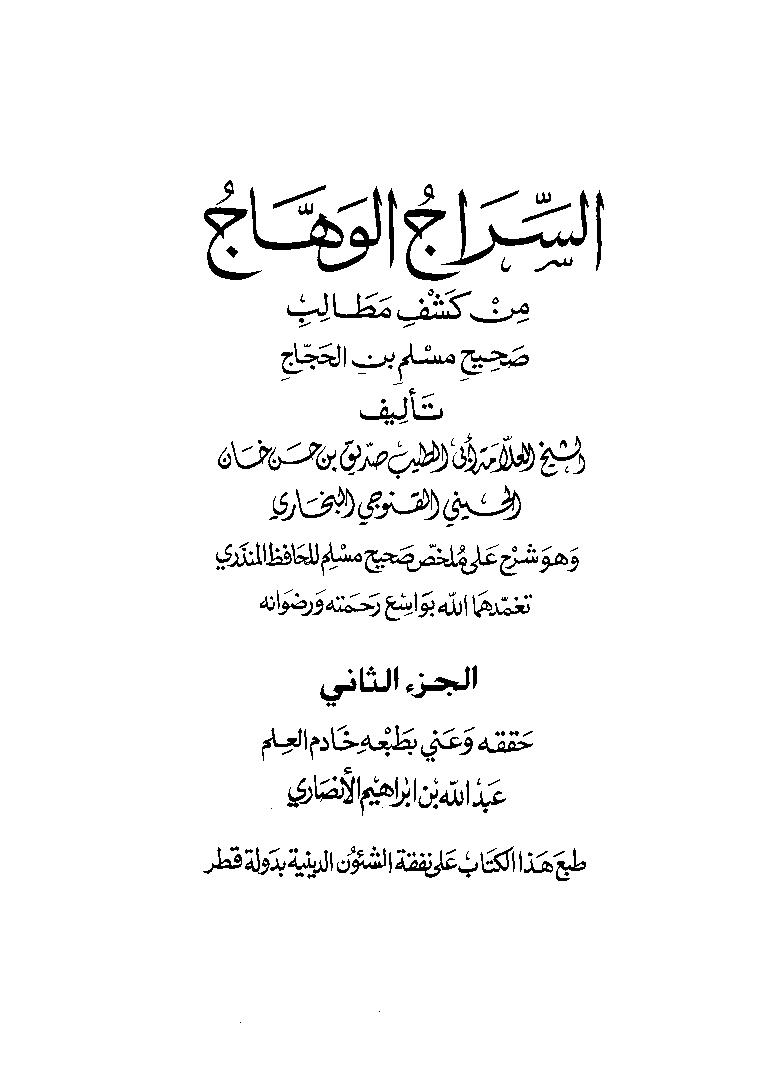 السِّرَاجُ الوَهَّاجُ
مِنْ كَشْفِ مَطَالِبِ
صَحِيحِ مسْلمِ بنِ الحَجّاجِ
تَأليف
الشيخ العلّامة أبي الطيب صدّيق بن حسن خان
الحسيني القنوجي البخاري
وَهوَ شَرْح عَلى مُلخّص صَحيح مسْلم للحَافظ المنذَري
تغمّدهمَا الله بوَاسِع رَحمَته وَرضوَانه
الجزء الثاني
حَققه وَعَني بطَبْعهِ خَادم العِلم
عَبْد الله بن ابراهيم الأنصَاري
طبعَ هَذا الكتَاب عَلى نفقة الشئوُن الدينية بدَولة قطر